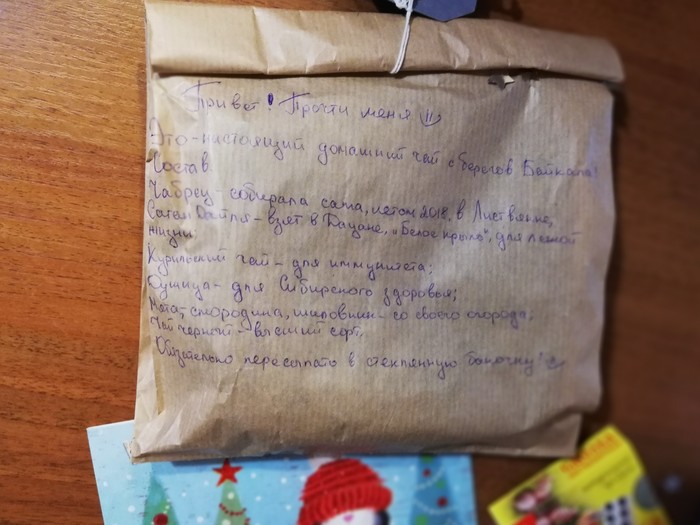 Привет! Прочти меня
Это - настоящий домашний чай с берегов Байкала!
Состав:
Чабрец - собирала сама, летом 2018, в Листвянке,
Саган Дайля - взят в Дацане, "Белое крыло", для долгой
жизни.
Курильский чай - для иммунитета;
Душица - для Сибирского здоровья;
Мята, смородина, шиповник - со своего огорода;
Чай черный - высший сорт.
Обязательно пересыпать в стеклянную баночку!